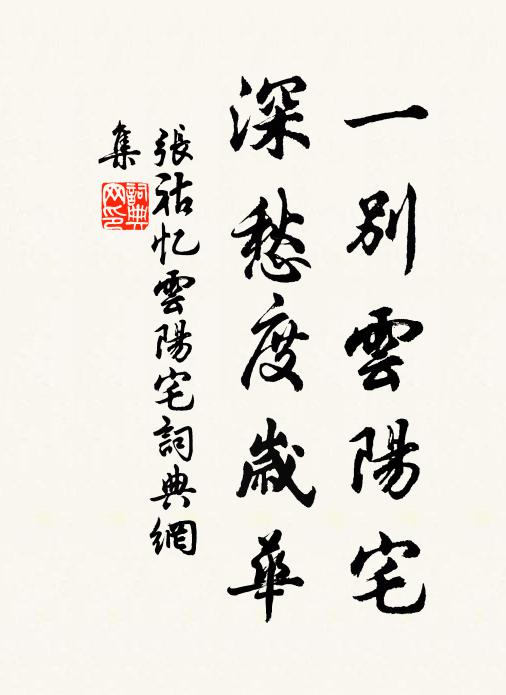 一別雲陽宅
深愁度歲華
張祜忆雲陽宅詞典網
集
詞典
网印